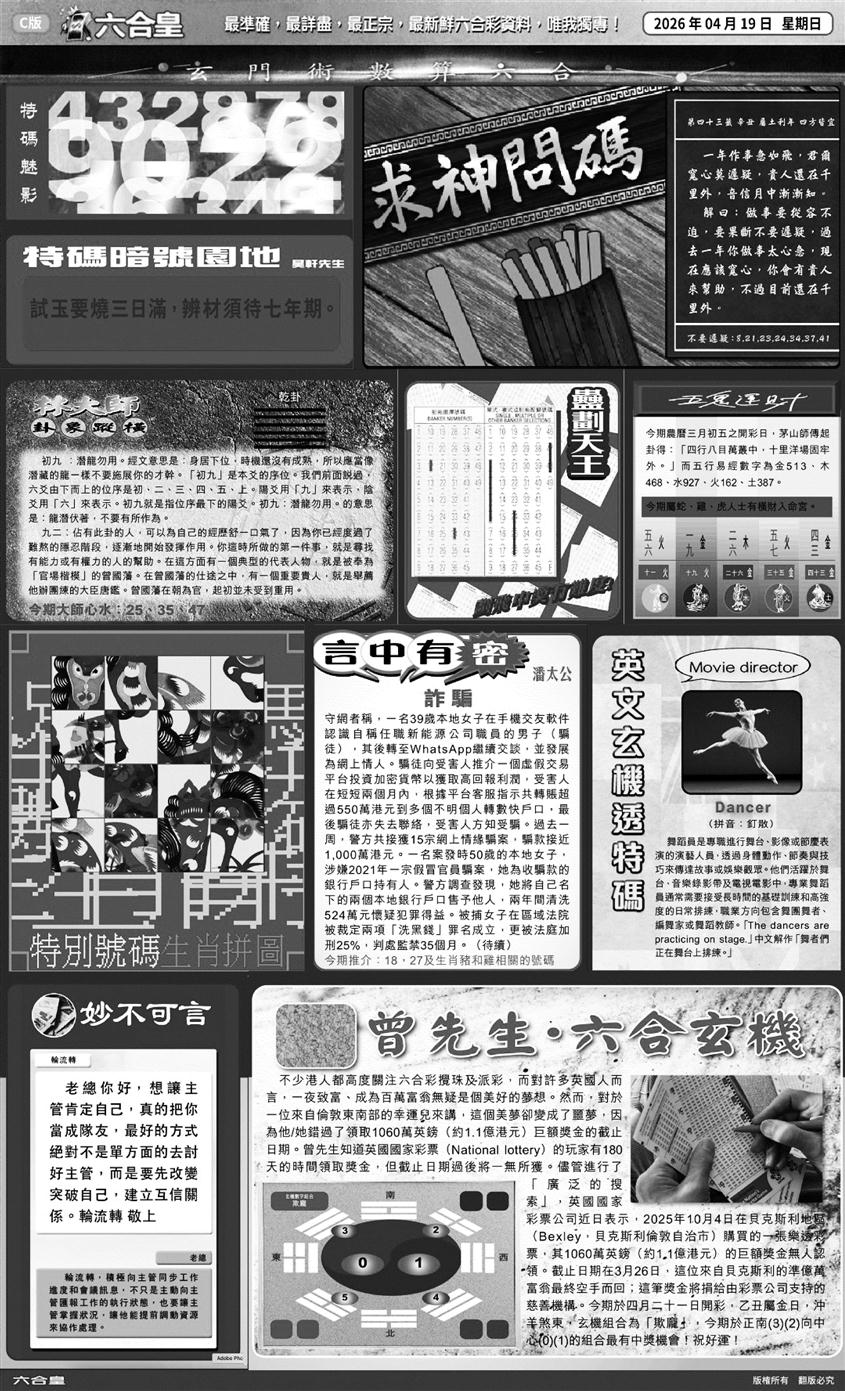 C版
六合皇
最準確，最詳盡，最正宗，最新鮮六合彩資料，唯我獨專！
2026 年 04 月 19 日 星期日
玄門術數算六合
特碼魅影
特碼暗號園地 吳軒先生
試玉要燒三日滿，辨材須待七年期。
求神問碼
第四十三籤 辛丑 屬土利年 四方皆宜
一年作事急如飛，君爾
寬心莫遲疑，貴人還在千
里外，音信月中漸漸知。
解曰：做事要從容不
迫，要果斷不要遲疑，過
去一年你做事太心急，現
在應該寬心，你會有貴人
來幫助，不過目前還在千
里外。
不要遲疑：8,21,23,24,34,37,41
林大師
卦象蹤橫
乾卦
初九 ：潛龍勿用。經文意思是：身居下位，時機還沒有成熟，所以應當像
潛藏的龍一樣不要施展你的才幹。「初九」是本爻的序位。我們前面說過，
六爻由下而上的位序是初、二、三、四、五、上。陽爻用「九」來表示，陰
爻用「六」來表示。初九就是指位序最下的陽爻。初九：潛龍勿用。的意思
是：龍潛伏著，不要有所作為。
九二：佔有此卦的人，可以為自己的經歷舒一口氣了，因為你已經度過了
難熬的隱忍階段，逐漸地開始發揮作用。你這時所做的第一件事，就是尋找
有能力或有權力的人的幫助。在這方面有一個典型的代表人物，就是被奉為
「官場楷模」的曾國藩。在曾國藩的仕途之中，有一個重要貴人，就是舉薦
他辦團練的大臣唐鑑。曾國藩在朝為官，起初並未受到重用。
今期大師心水：25、35、47
蠱劃天王
五鬼運財
今期農曆三月初五之開彩日，茅山師傅起
卦得：「四行八目萬叢中，十里洋場固牢
外。」而五行易經數字為金513、木
468、水927、火162、土387。
今期屬蛇、雞、虎人士有橫財入命宮。
五六 火
一九 金
二六 木
五七 火
四三 金
十一 火
十九 火
二十六 金
三十五 金
四十三 金
特別號碼生肖拼圖
言中有密
潘太公
詐騙
守網者稱，一名39歲本地女子在手機交友軟件
認識自稱任職新能源公司職員的男子（騙
徒），其後轉至WhatsApp繼續交談，並發展
為網上情人。騙徒向受害人推介一個虛假交易
平台投資加密貨幣以獲取高回報利潤，受害人
在短短兩個月內，根據平台客服指示共轉賬超
過550萬港元到多個不明個人轉數快戶口，最
後騙徒亦失去聯絡，受害人方知受騙。過去一
周，警方共接獲15宗網上情緣騙案，騙款接近
1,000萬港元。一名案發時50歲的本地女子，
涉嫌2021年一宗假冒官員騙案，她為收騙款的
銀行戶口持有人。警方調查發現，她將自己名
下的兩個本地銀行戶口售予他人，兩年間清洗
524萬元懷疑犯罪得益。被捕女子在區域法院
被裁定兩項「洗黑錢」罪名成立，更被法庭加
刑25%，判處監禁35個月。（待續）
今期推介：18，27及生肖豬和雞相關的號碼
英文玄機透特碼
Movie director
Dancer
（拼音：釘散）
舞蹈員是專職進行舞台、影像或節慶表
演的演藝人員，透過身體動作、節奏與技
巧來傳達故事或娛樂觀眾。他們活躍於舞
台、音樂錄影帶及電視電影中，專業舞蹈
員通常需要接受長時間的基礎訓練和高強
度的日常排練，職業方向包含舞團舞者、
編舞家或舞蹈教師。「The dancers are
practicing on stage.」中文解作「舞者們
正在舞台上排練。」
妙不可言
輪流轉
老總你好，想讓主
管肯定自己，真的把你
當成隊友，最好的方式
絕對不是單方面的去討
好主管，而是要先改變
突破自己，建立互信關
係。輪流轉 敬上
老總
輪流轉，積極向主管同步工作
進度和會議訊息，不只是主動向主
管匯報工作的執行狀態，也要讓主
管掌握狀況，讓他能提前調動資源
來協作處理。
Adobe Pho
曾先生·六合玄機
不少港人都高度關注六合彩攪珠及派彩，而對許多英國人而
言，一夜致富、成為百萬富翁無疑是個美好的夢想。然而，對於
一位來自倫敦東南部的幸運兒來講，這個美夢卻變成了噩夢，因
為他/她錯過了領取1060萬英鎊（約1.1億港元）巨額獎金的截止
日期。曾先生知道英國國家彩票（National lottery）的玩家有180
天的時間領取獎金，但截止日期過後將一無所獲。儘管進行了
「廣泛的搜
索」，英國國家
彩票公司近日表示，2025年10月4日在貝克斯利地區
（Bexley，貝克斯利倫敦自治市）購買的一張樂透彩
票，其1060萬英鎊（約1.1億港元）的巨額獎金無人認
領。截止日期在3月26日，這位來自貝克斯利的準億萬
富翁最終空手而回；這筆獎金將捐給由彩票公司支持的
慈善機構。今期於四月二十一日開彩，乙丑屬金日，沖
羊煞東，玄機組合為「欺龐」，今期於正南(3)(2)向中
心(0)(1)的組合最有中獎機會！祝好運！
玄機數字組合
欺龐
南
東
西
北
3
2
0
1
5
4
六合皇
版權所有 翻版必究